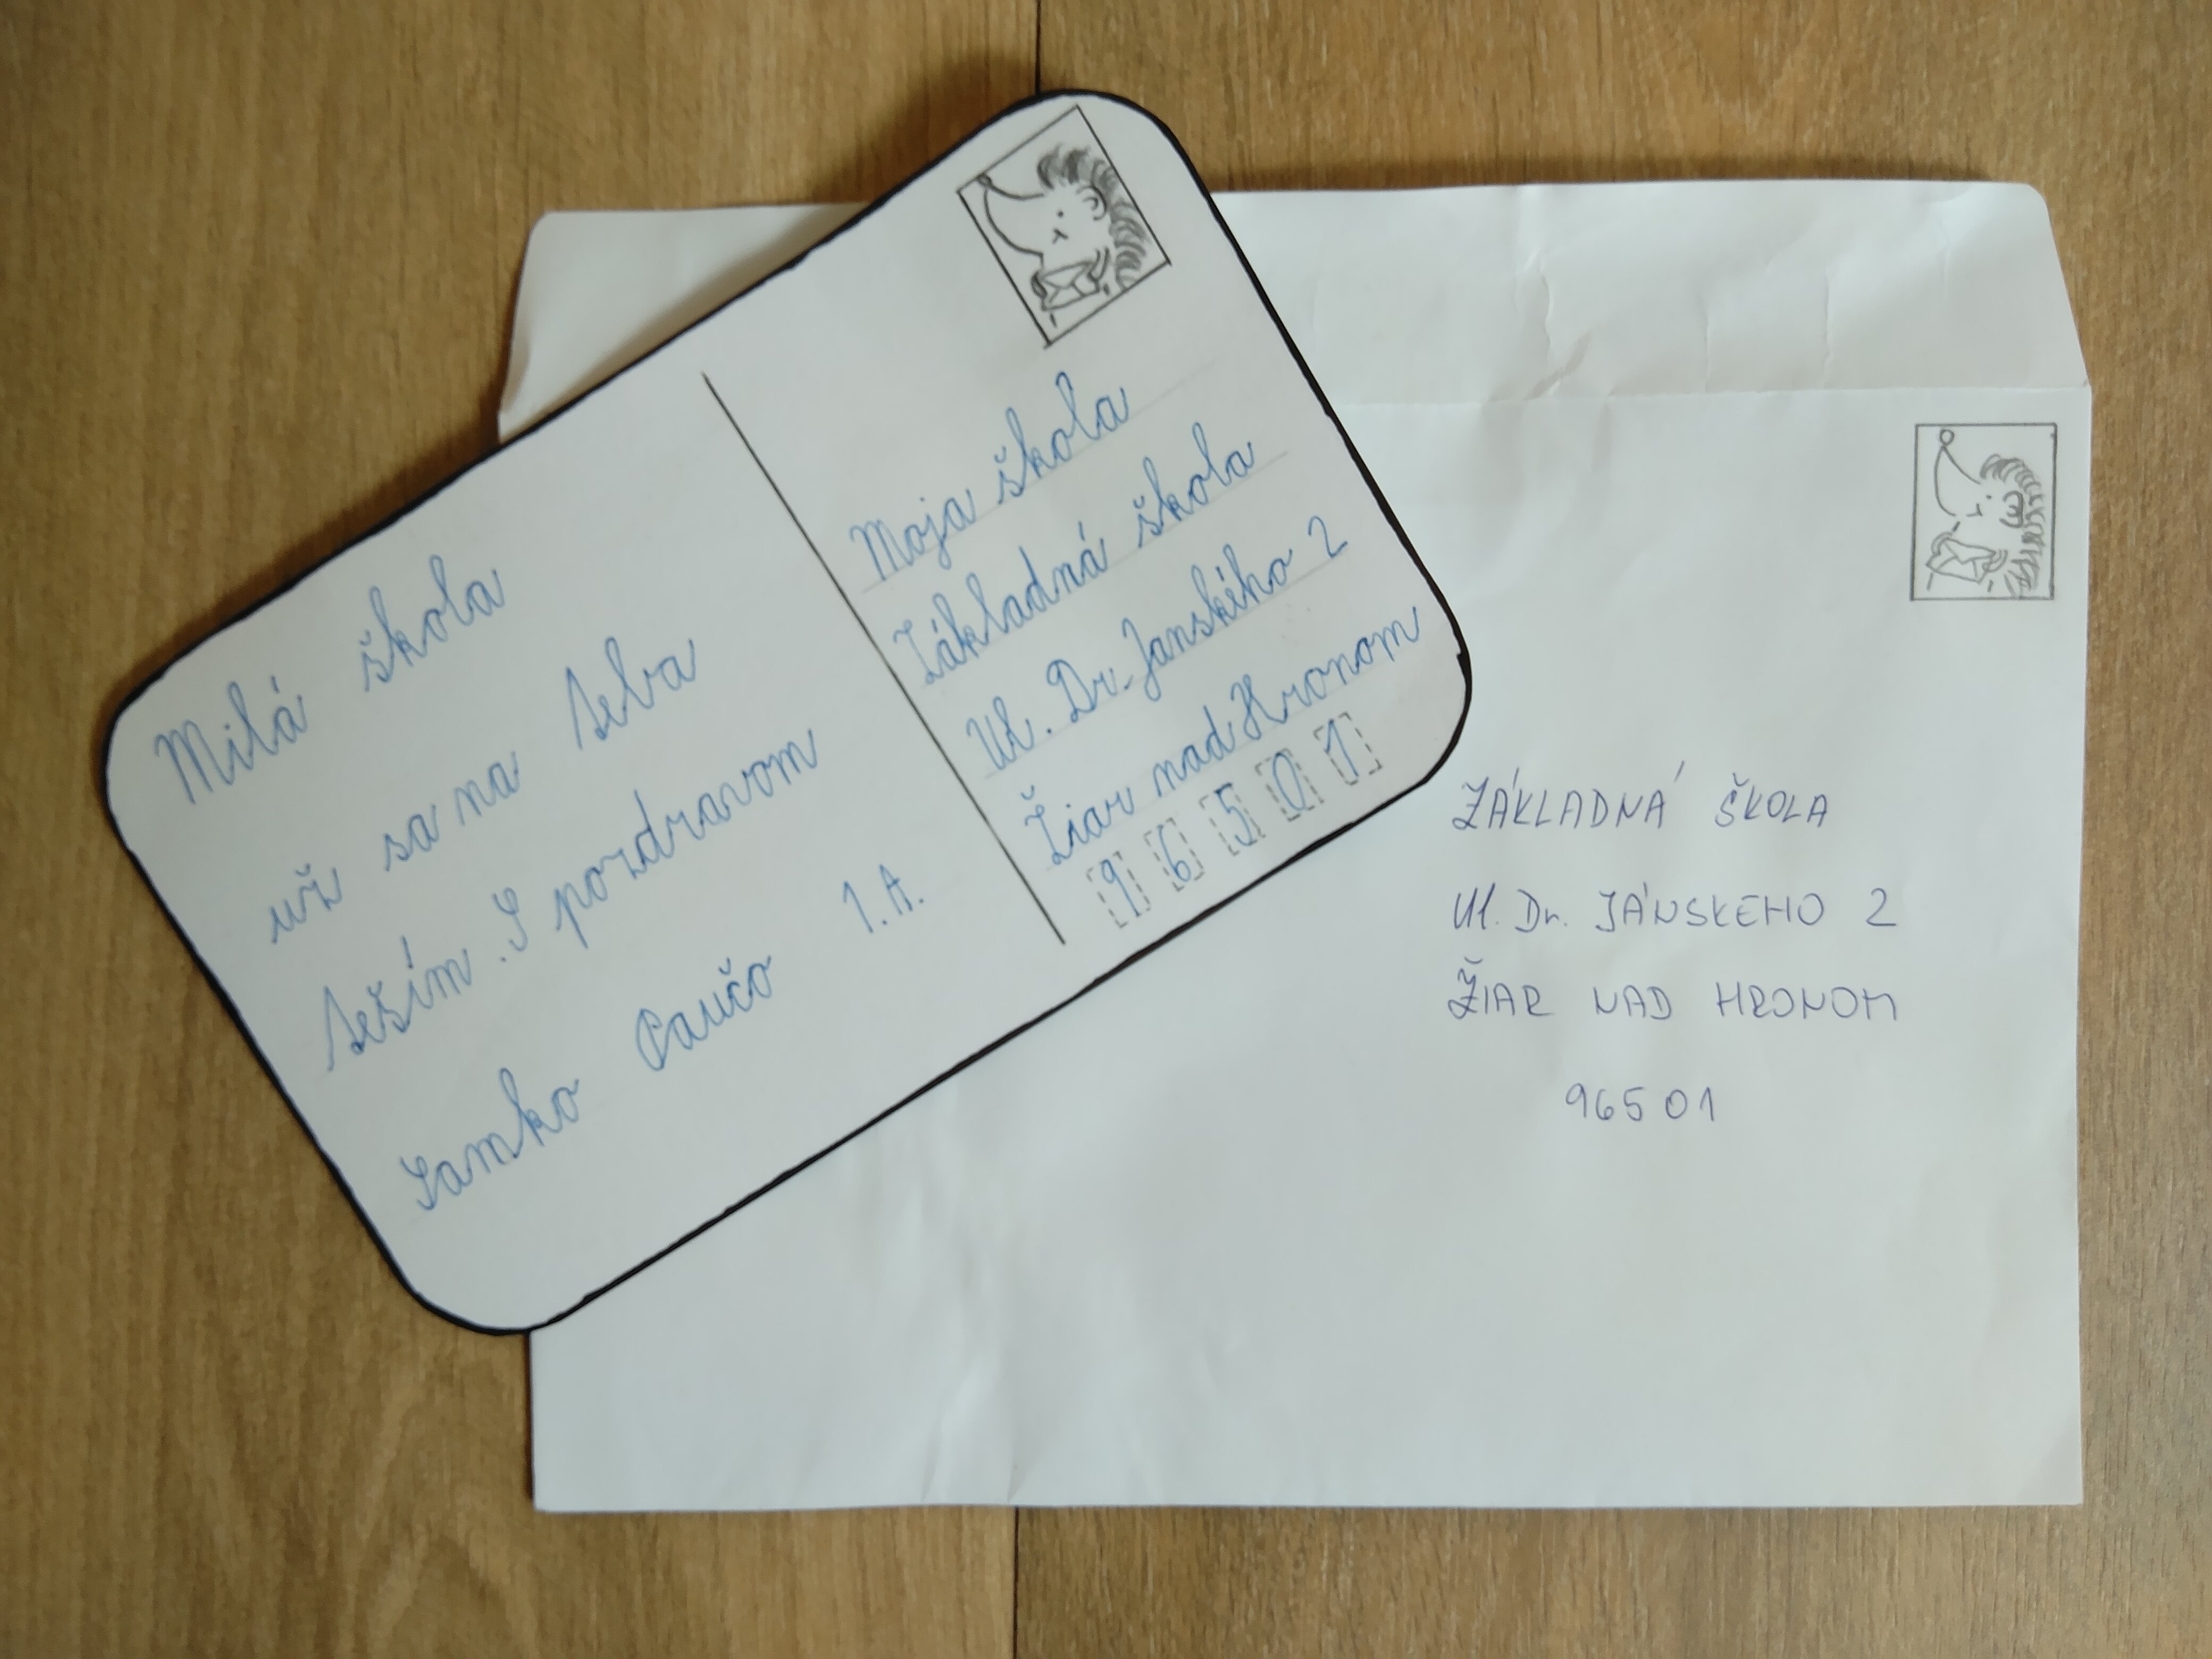 Milá škola
už sa na teba
teším. S pozdravom
Samko Paučo 1.A.
Moja škola
Základná škola
Ul. Dr. Janského 2
Žiar nad Hronom
96501
ZÁKLADNÁ ŠKOLA
Ul. Dr. JÁNSKEHO 2
ŽIAR NAD HRONOM
965 01